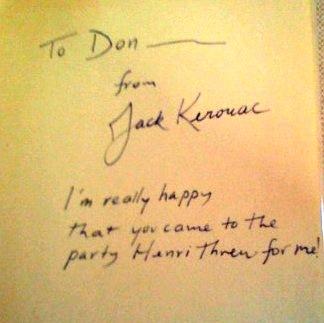 To Don —
from
Jack Kerouac
I'm really happy
that you came to the
party Henri threw for me!